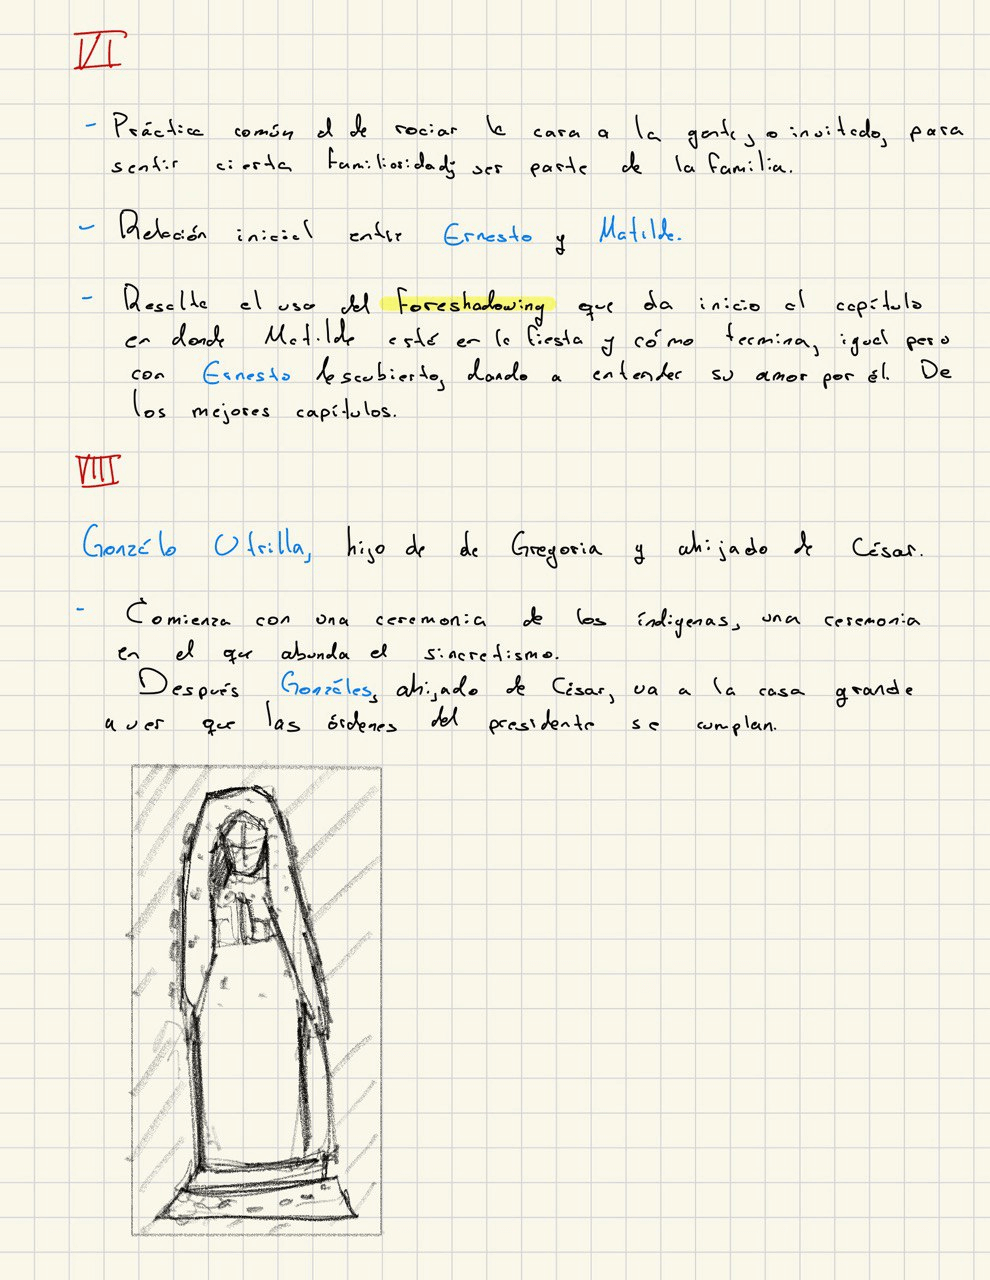 VI
- Práctica común el de rociar la cara a la gente, o invitado, para
sentir cierta familiaridad; ser parte de la familia.
- Relación inicial entre Ernesto y Matilde.
- Resalta el uso del foreshadowing que da inicio al capítulo
en donde Matilde está en la fiesta y cómo termina, igual pero
con Ernesto descubierto, dando a entender su amor por él. De
los mejores capítulos.
VIII
Gonzálo Utrilla, hijo de de Gregoria y ahijado de César.
- Comienza con una ceremonia de los índigenas, una ceremonia
en el que abunda el sincretismo.
Después Gonzáles, ahijado de César, va a la casa grande
a ver que las órdenes del presidente se cumplan.